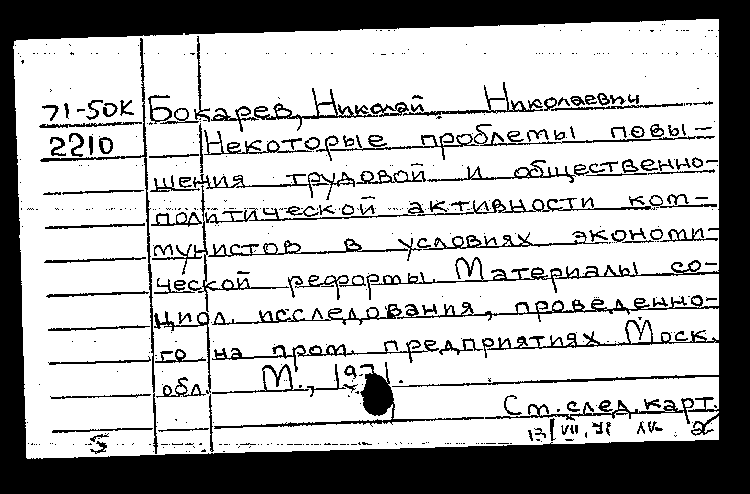 71-50К Бокарев, Николай Николаевич
2210 Некоторые проблемы повы-
шения трудовой и общественно-
политической активности ком-
мунистов в условиях экономи-
ческой реформы. Материалы со-
циол. исследования, проведенно-
го на пром. предприятиях Моск.
обл. М., 1971.
См. след. карт.
13/VII.71
S